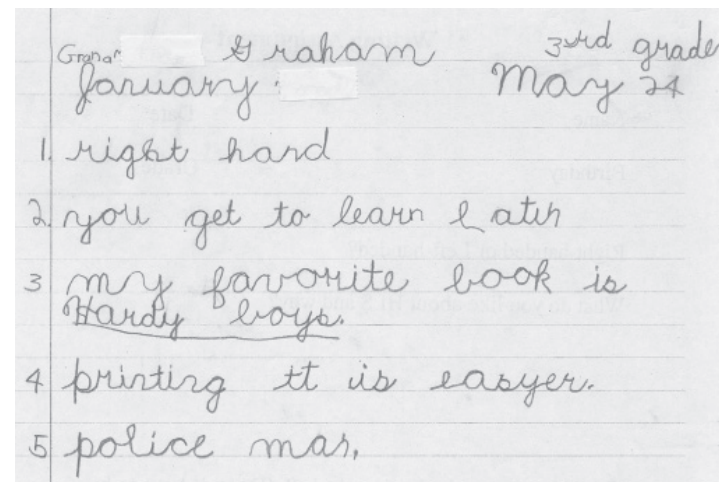 Graham 3rd grade
January May 24
1. right hand
2. you get to learn Latin
3 my favorite book is
Hardy boys.
4 printing tt is easyer.
5 police man.